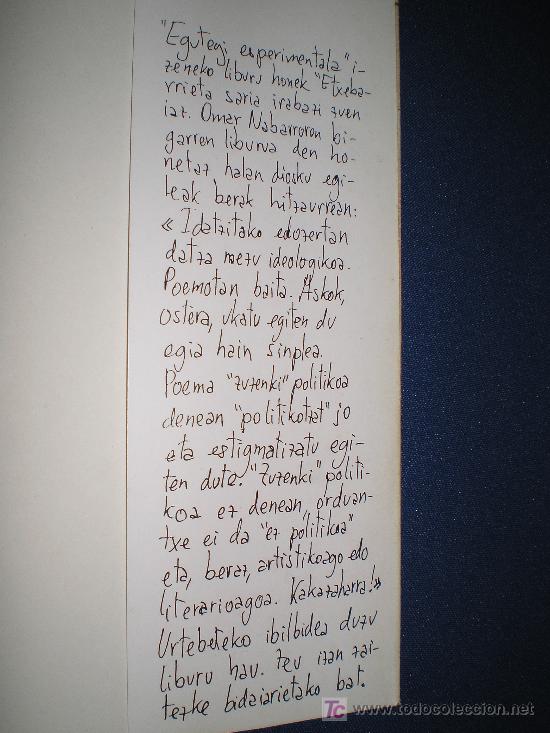 "Egutegi esperimentala" i-
zeneko liburu honek "Etxeba-
rrieta saria irabazi zuen
iaz. Omar Nabarroren bi-
garren liburua den ho-
netaz halan diosku egi-
leak berak hitzaurrean:
« Idatzitako edozertan
datza mezu ideologikoa.
Poemotan baita. Askok,
ostera, ukatu egiten du
egia hain sinplea.
Poema "zuzenki" politikoa
denean "politikotzat" jo
eta estigmatizatu egi-
ten dute. "Zuzenki" politi-
koa ez denean, orduan-
txe ei da "ez politikoa"
eta, beraz, artistikoago edo
literarioagoa. Kakazaharra!»
Urtebeteko ibilbidea duzu
liburu hau. Zeu izan zai-
tezke bidaiarietako bat.
TC www.todocoleccion.net